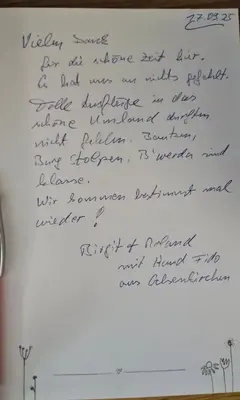 27.09.25
Vielen Dank
für die schöne Zeit hier.
Es hat uns an nichts gefehlt.
Tolle Ausflüge in das
schöne Umland durften
nicht fehlen. Bautzen,
Burg Stolpen, B'werda sind
klasse.
Wir kommen bestimmt mal
wieder!
Birgit + Roland
mit Hund Fido
aus Gelsenkirchen